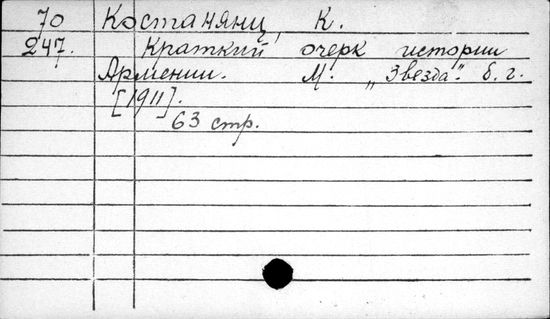 70 Костанянц, К.
247. Краткий очерк истории
Армении. М. „Звезда". б. г.
[1911].
63 стр.